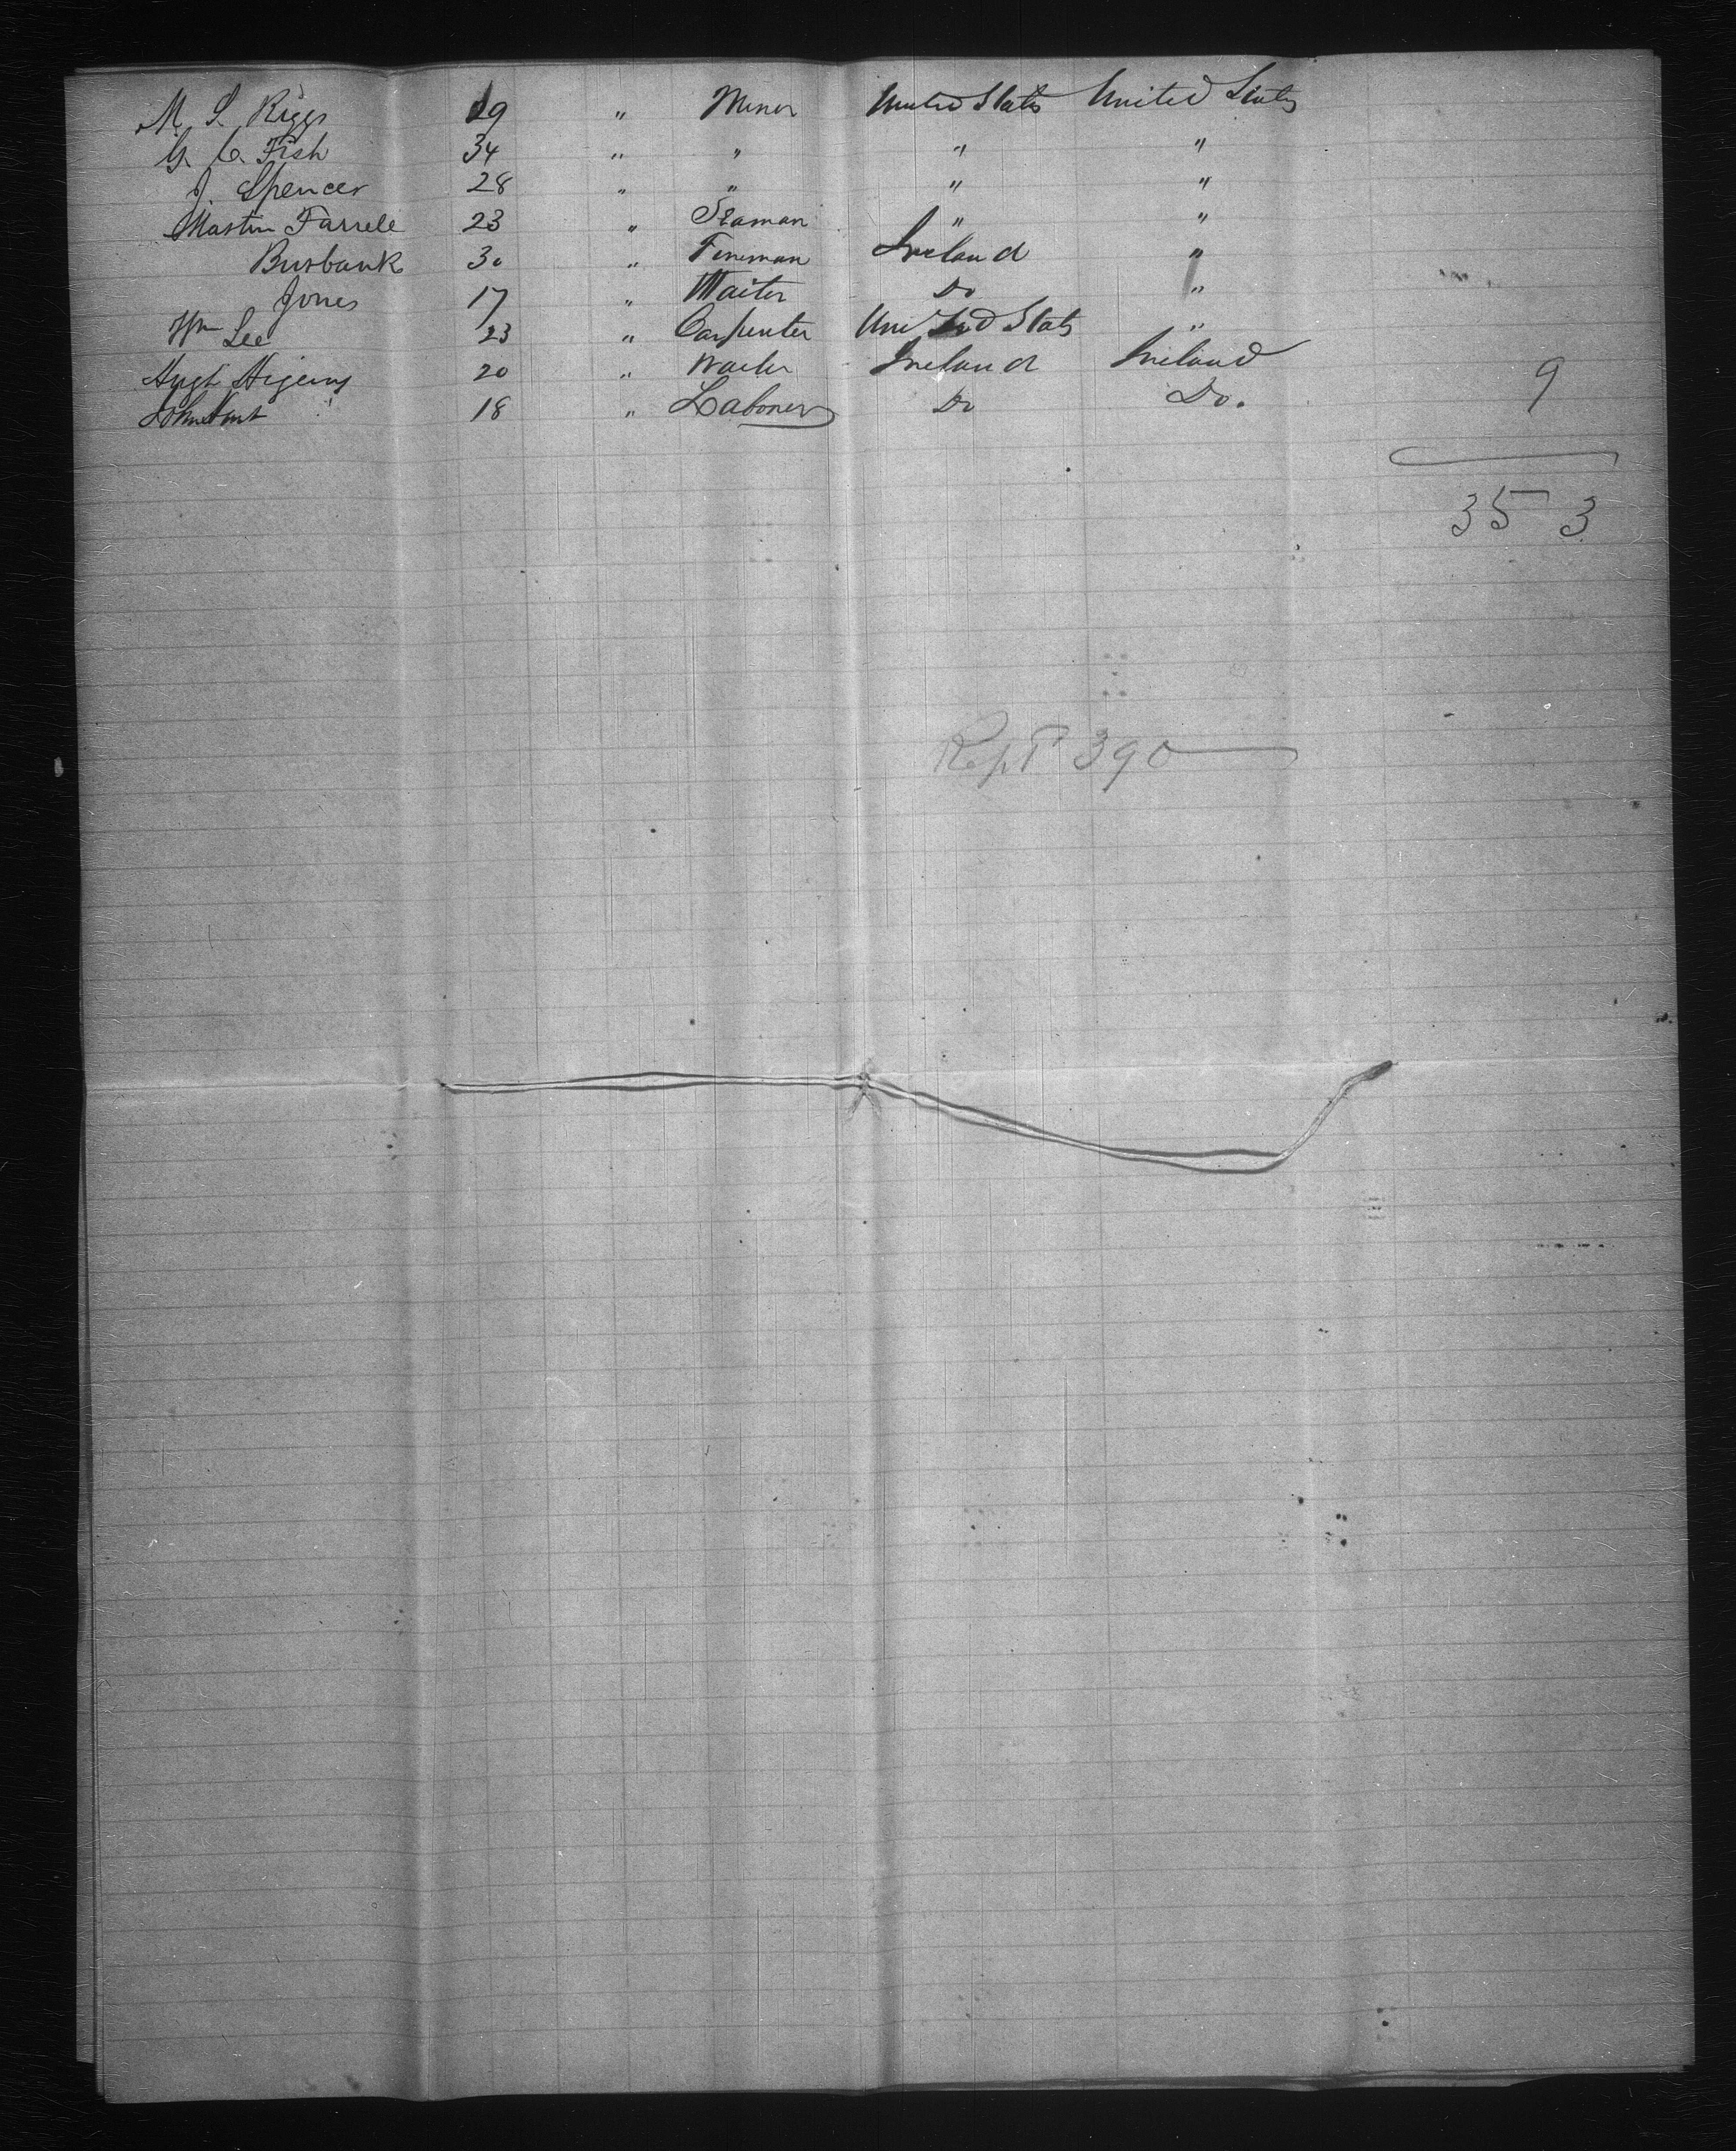 M. S. Riggs 29 " Miner United States United States
G. C. Fish 34 " " " "
J. Spencer 28 " " " "
Martin Farrele 23 " Seaman " "
Burbank 30 " Fireman Ireland "
Jones 17 " Waiter Do "
Wm Lee 23 " Carpenter United Stats "
Hugh Higeins 20 " Waiter Ireland Ireland
18 " Laborer Do Do.
9
353
Rept 390